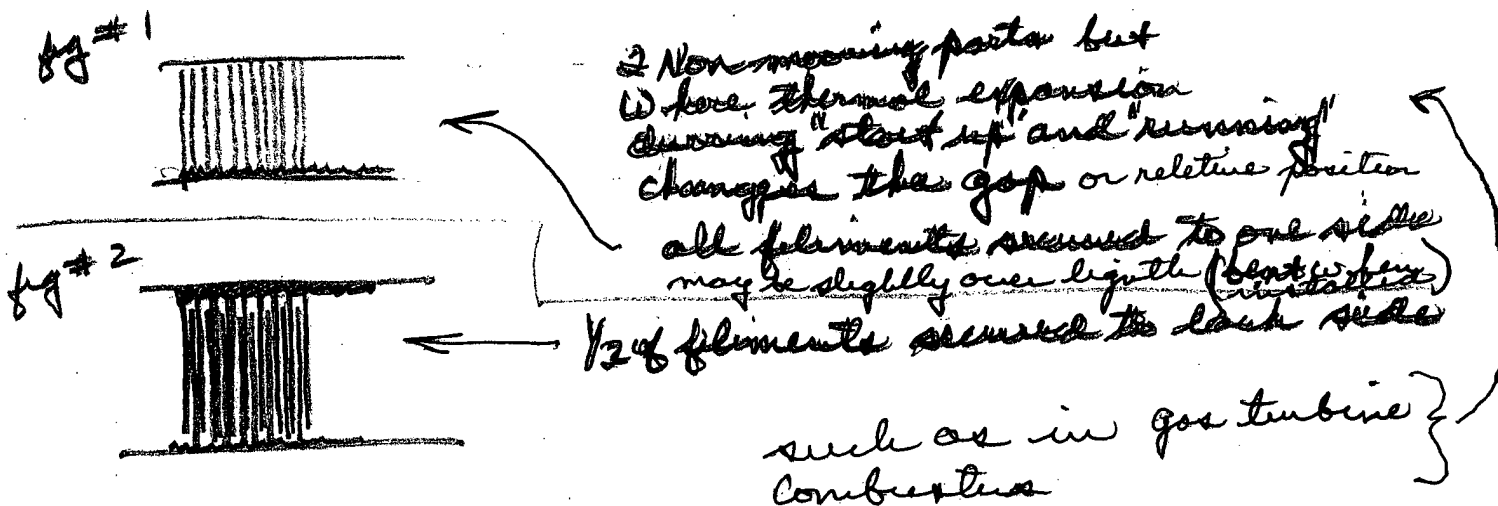 fig # 1
2 Non-mooving parts but
where thermol exponsion
durring "start up" and "running"
changges the gap or reletive position
all filiments secured to one side
may be slightly over lignth (bent when installed)
fig # 2
1/2 of filiments secured to each side
such as in gas turbine
Combustors